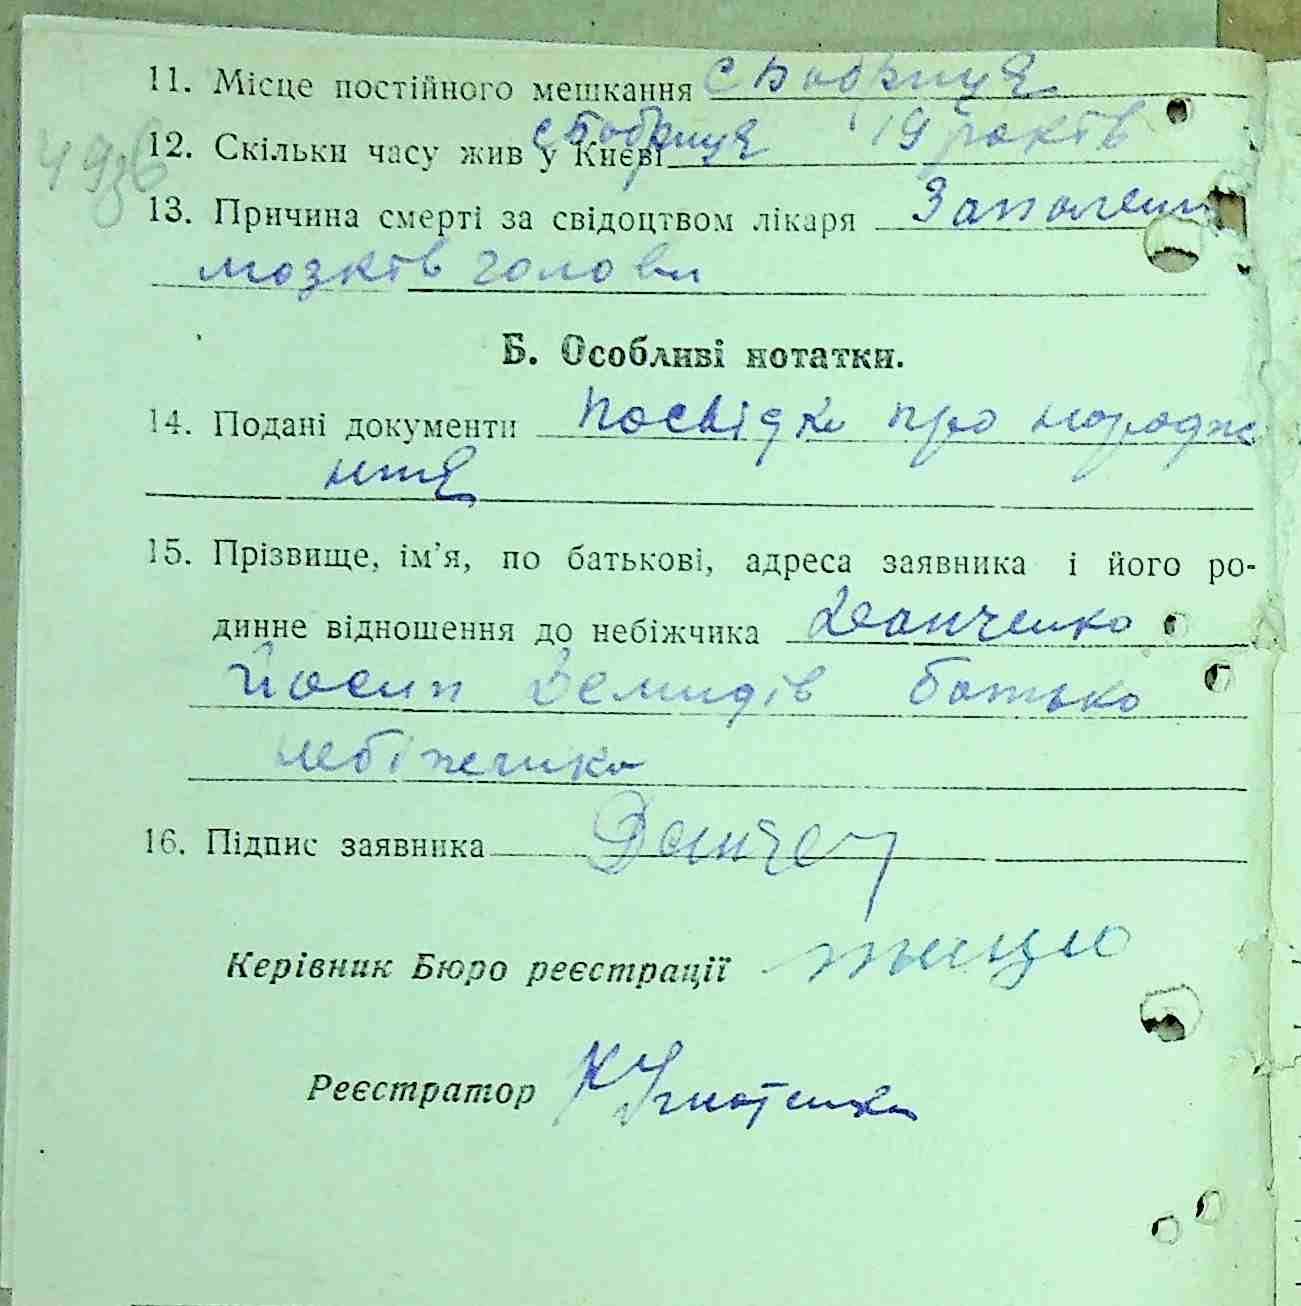 11. Місце постійного мешкання с Бобриця
12. Скільки часу жив у Києві с Бобриця 19 років
13. Причина смерті за свідоцтвом лікаря Запаленн
мозків голови
Б. Особливі нотатки.
14. Подані документи Посвідка про народже
ння
15. Прізвище, ім'я, по батькові, адреса заявника і його ро-
динне відношення до небіжчика Данченко
Йосип Демидів батько
небіжчика
16. Підпис заявника Данче
Керівник Бюро реєстрації
Реєстратор